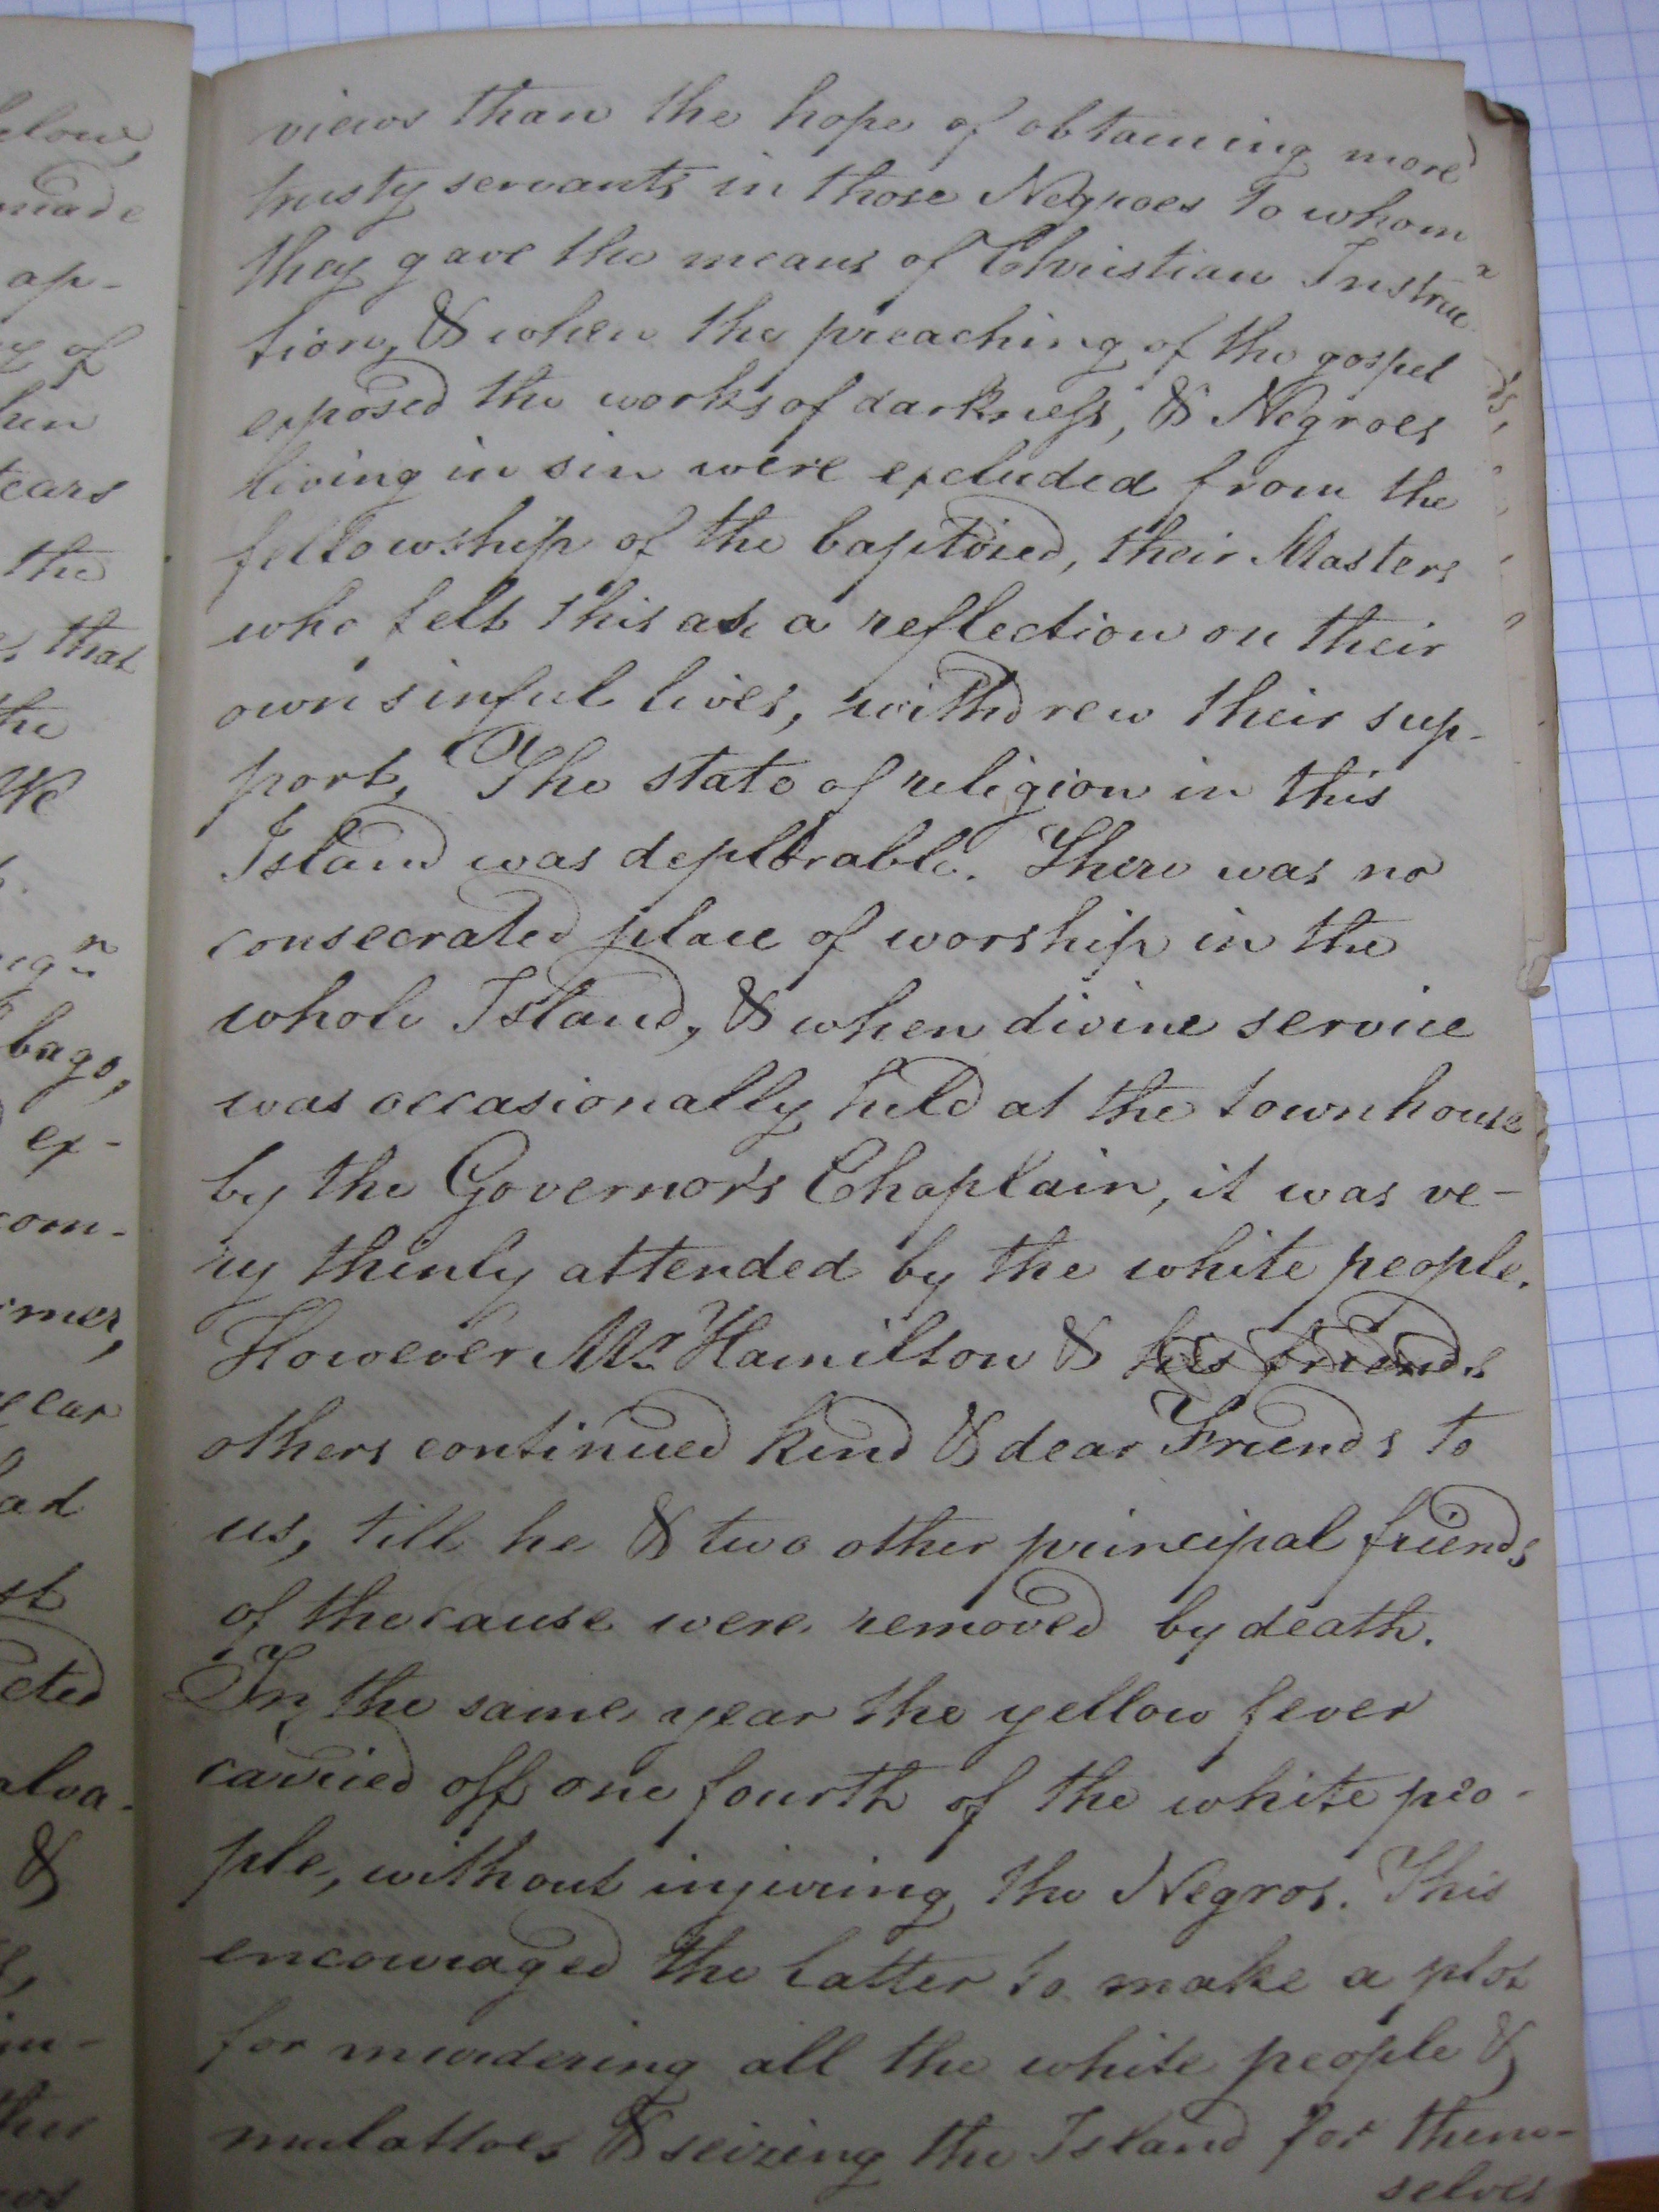 views than the hope of obtaining more
trusty servants in those Negroes to whom
they gave the means of Christian Instruc
tion, & when the preaching of the gospel
exposed the works of darkness, & Negroes
living in sin were excluded from the
fellowship of the baptised, their Masters
who felt this as a reflection on their
own sinful lives, withdrew their sup-
port, The state of religion in this
Island was deplorable. There was no
consecrated place of worship in the
whole Island, & when divine service
was occasionally held at the townhouse
by the Governors Chaplain, it was ve-
ry thinly attended by the white people.
However Mr Hamilton & his friends
others continued kind & dear Friends to
us, till he & two other principal friends
of the cause were removed by death.
In the same year the yellow fever
carried off one fourth of the white peo-
ple, without injuring the Negros. This
encouraged the latter to make a plot
for murdering all the white people &
mulattoes & seizing the Island for them-
selves